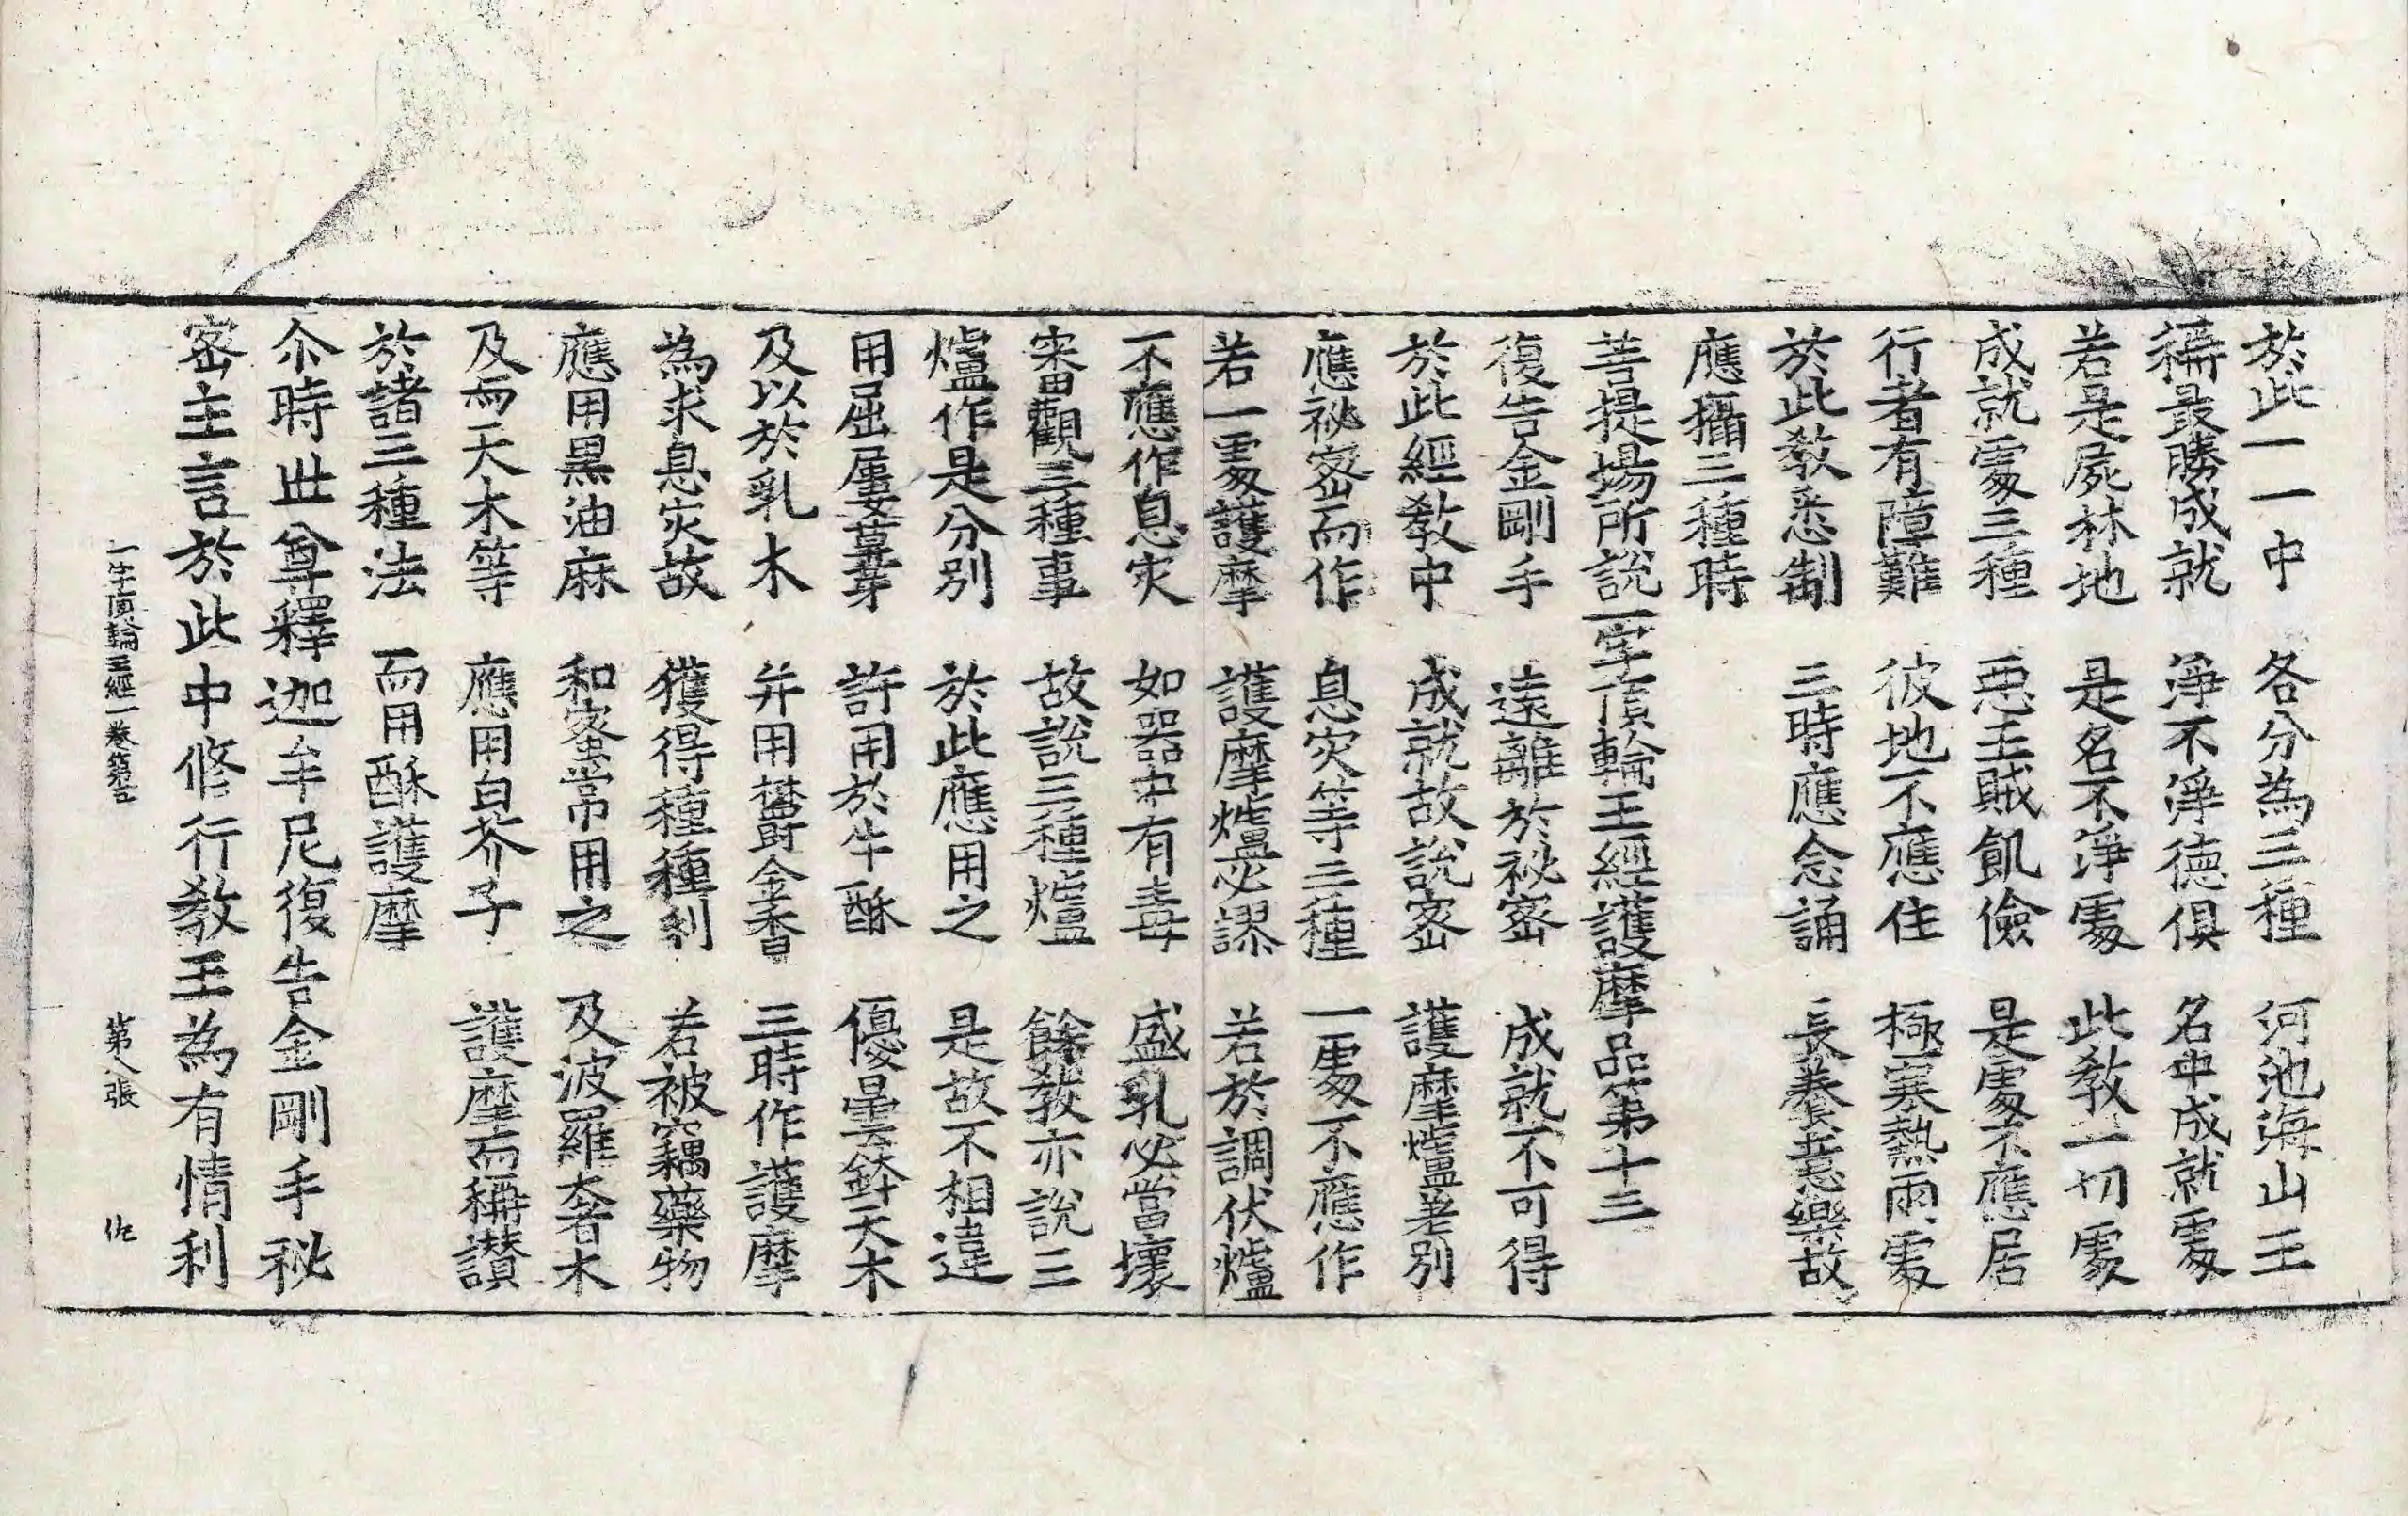 於此一一中　各分為三種　河池海山王
稱最勝成就　淨不淨德俱　名中成就處
若是屍林地　是名不淨處　此教一切處
成就處三種　惡王賊飢儉　是處不應居
行者有障難　彼地不應住　極寒熱雨處
於此教悉制　三時應念誦　長養意樂故
應攝三種時
菩提場所說一字頂輪王經護摩品第十三
復告金剛手　遠離於祕密　成就不可得
於此經教中　成就故說密　護摩爐差別
應祕密而作　息灾等三種　一處不應作
若一處護摩　護摩爐必謬　若於調伏爐
不應作息灾　如器中有毒　盛乳必當壞
審觀三種事　故說三種爐　餘教亦說三
爐作是分別　於此應用之　是故不相違
用屈屢蔞芽　許用於牛酥　優曇鉢天木
及以於乳木　并用欝金香　三時作護摩
為求息灾故　獲得種種利　若被竊藥物
應用黑油麻　和蜜常用之　及波羅奢木
及而天木等　應用白芥子　護摩而稱讃
於諸三種法　而用酥護摩
尒時世尊釋迦牟尼復告金剛手秘
密主言於此中修行教王為有情利
一字頂輪王經二卷　第八張